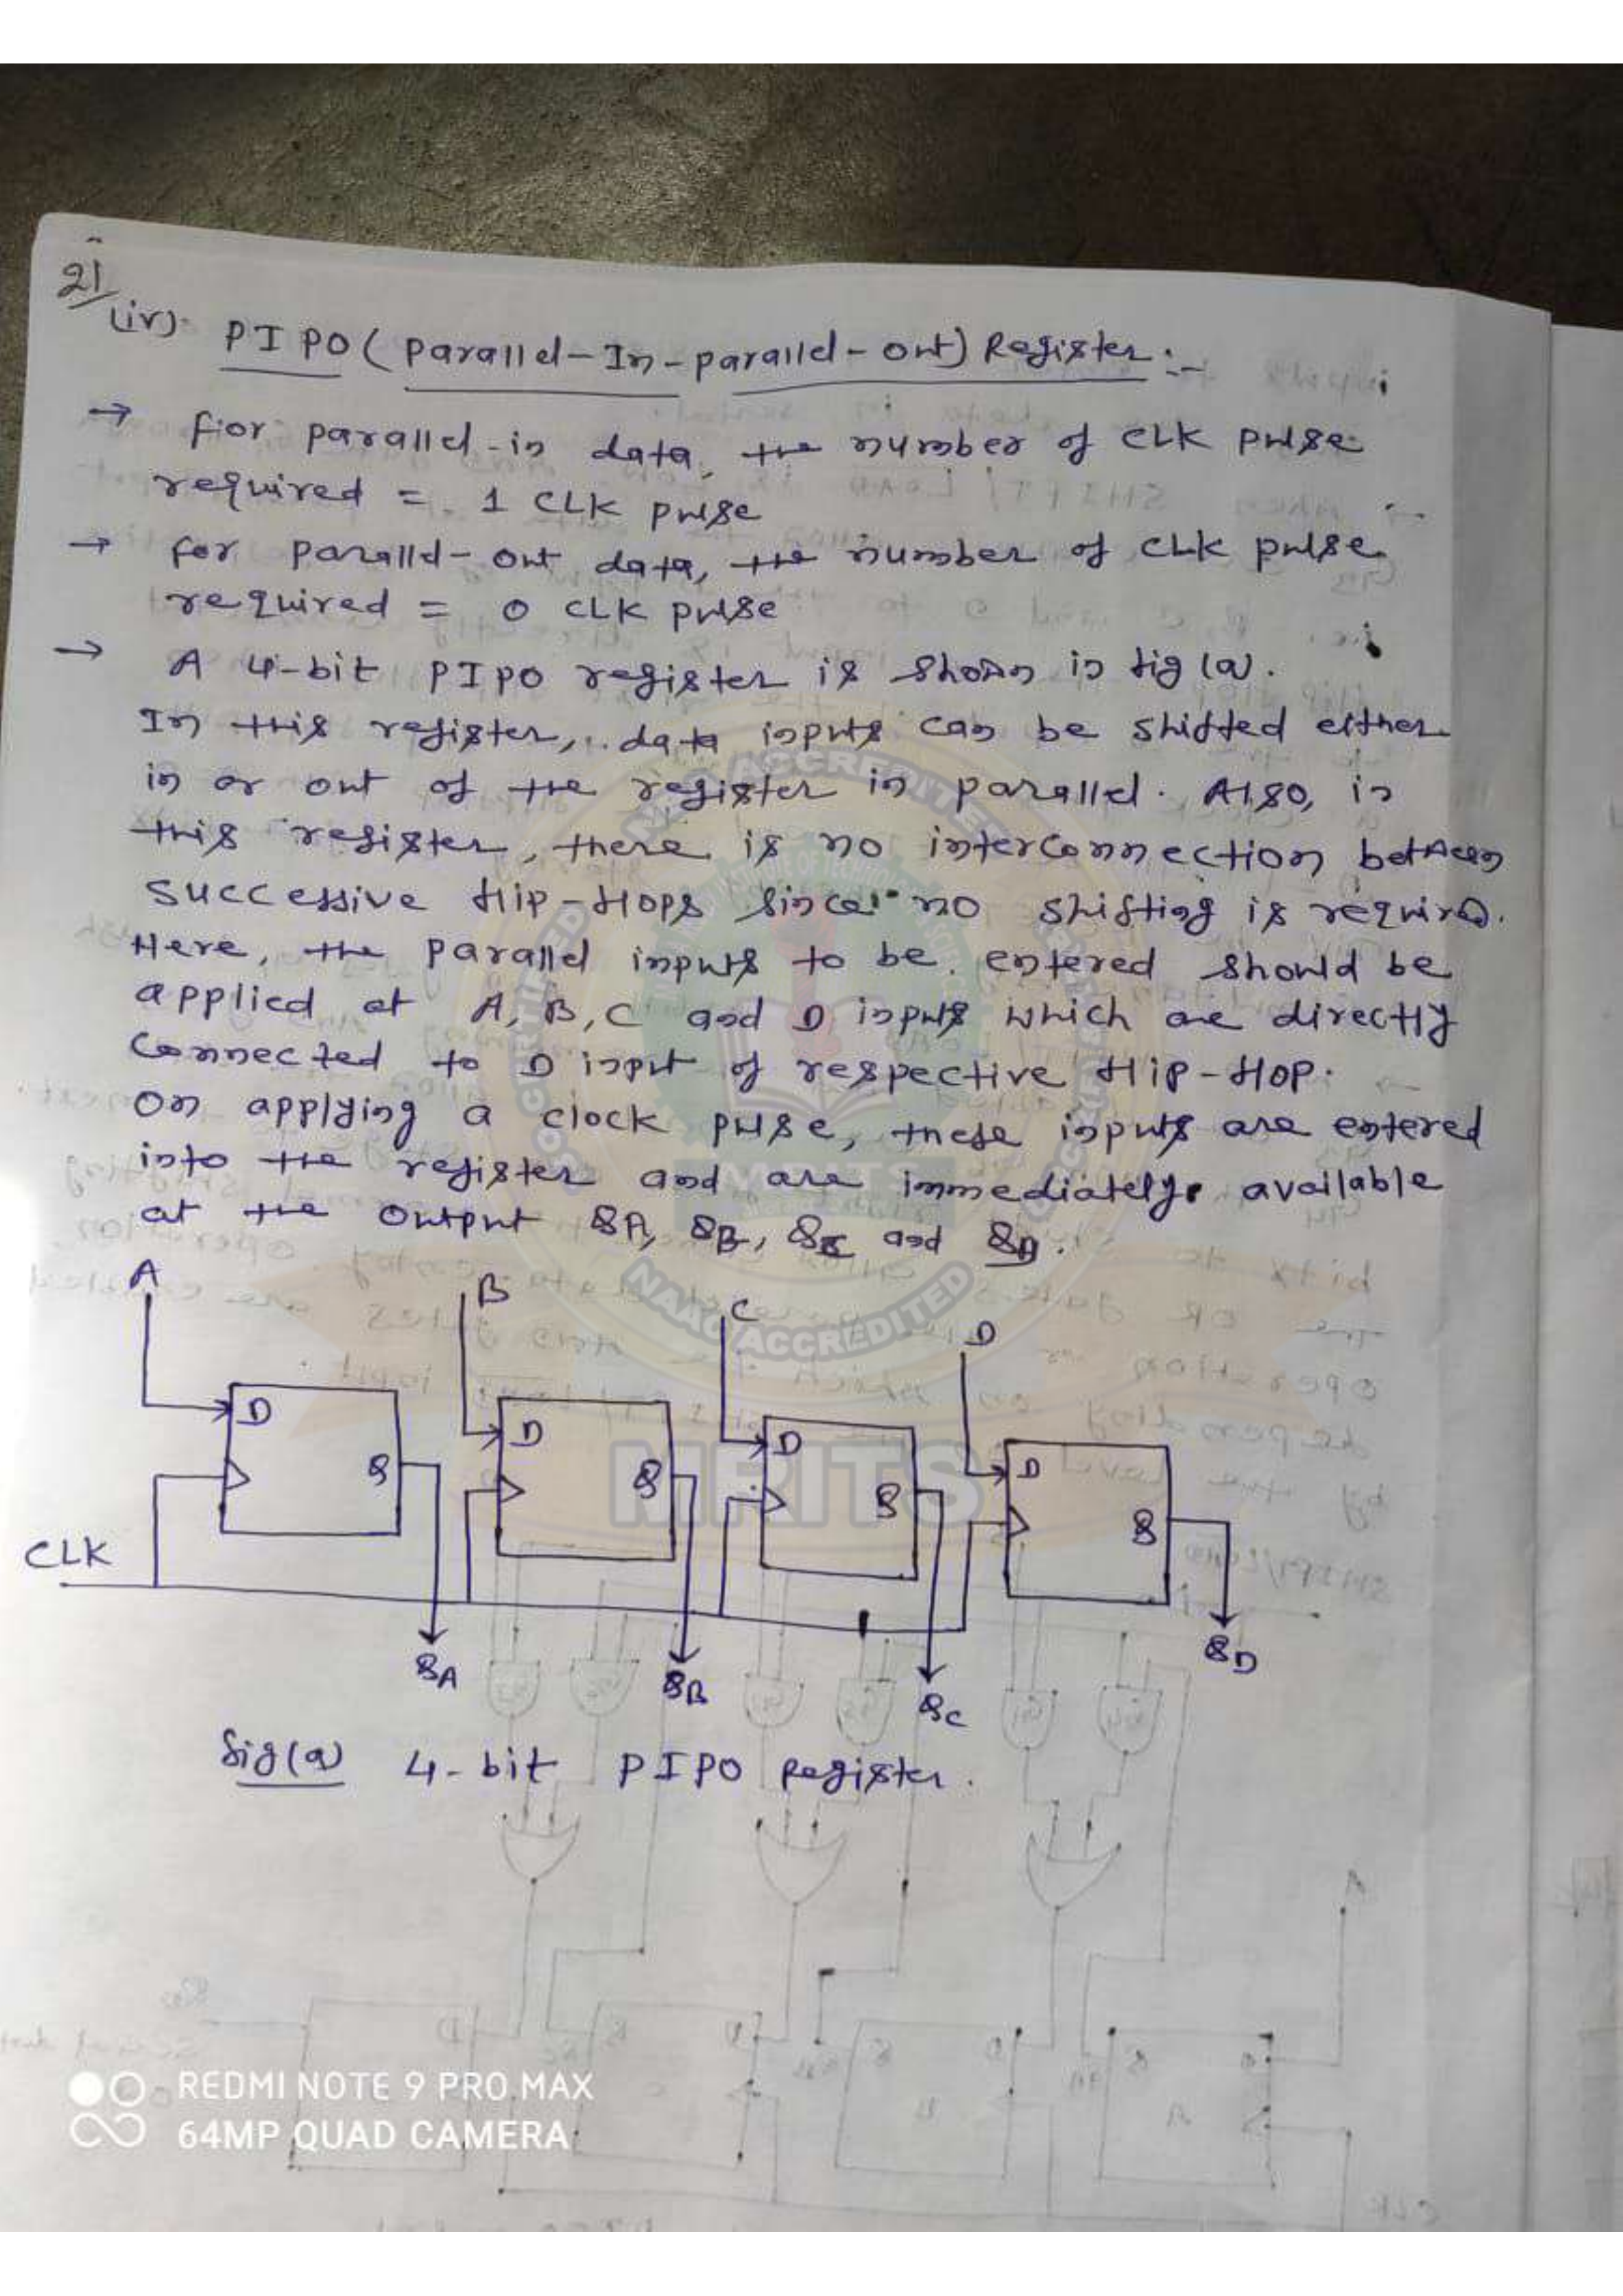 21
(iv). PIPO (Parallel-In-parallel-out) Register:-
→ For parallel-in data, the number of CLK pulse
required = 1 CLK pulse
→ for parallel-out data, the number of CLK pulse
required = 0 CLK pulse
→ A 4-bit PIPO register is shown in fig (a).
In this register, data inputs can be shifted either
in or out of the register in parallel. Also, in
this register, there is no interconnection between
successive flip-flops since no shifting is required.
Here, the parallel inputs to be entered should be
applied at A, B, C and D inputs which are directly
connected to D input of respective flip-flop.
On applying a clock pulse, these inputs are entered
into the register and are immediately available
at the output QA, QB, QC and QD.
A B C D
D D D D
Q Q Q Q
CLK
QA QB QC QD
fig(a) 4-bit PIPO register.
NAAC ACCREDITED
MRITS
REDMI NOTE 9 PRO MAX
64MP QUAD CAMERA